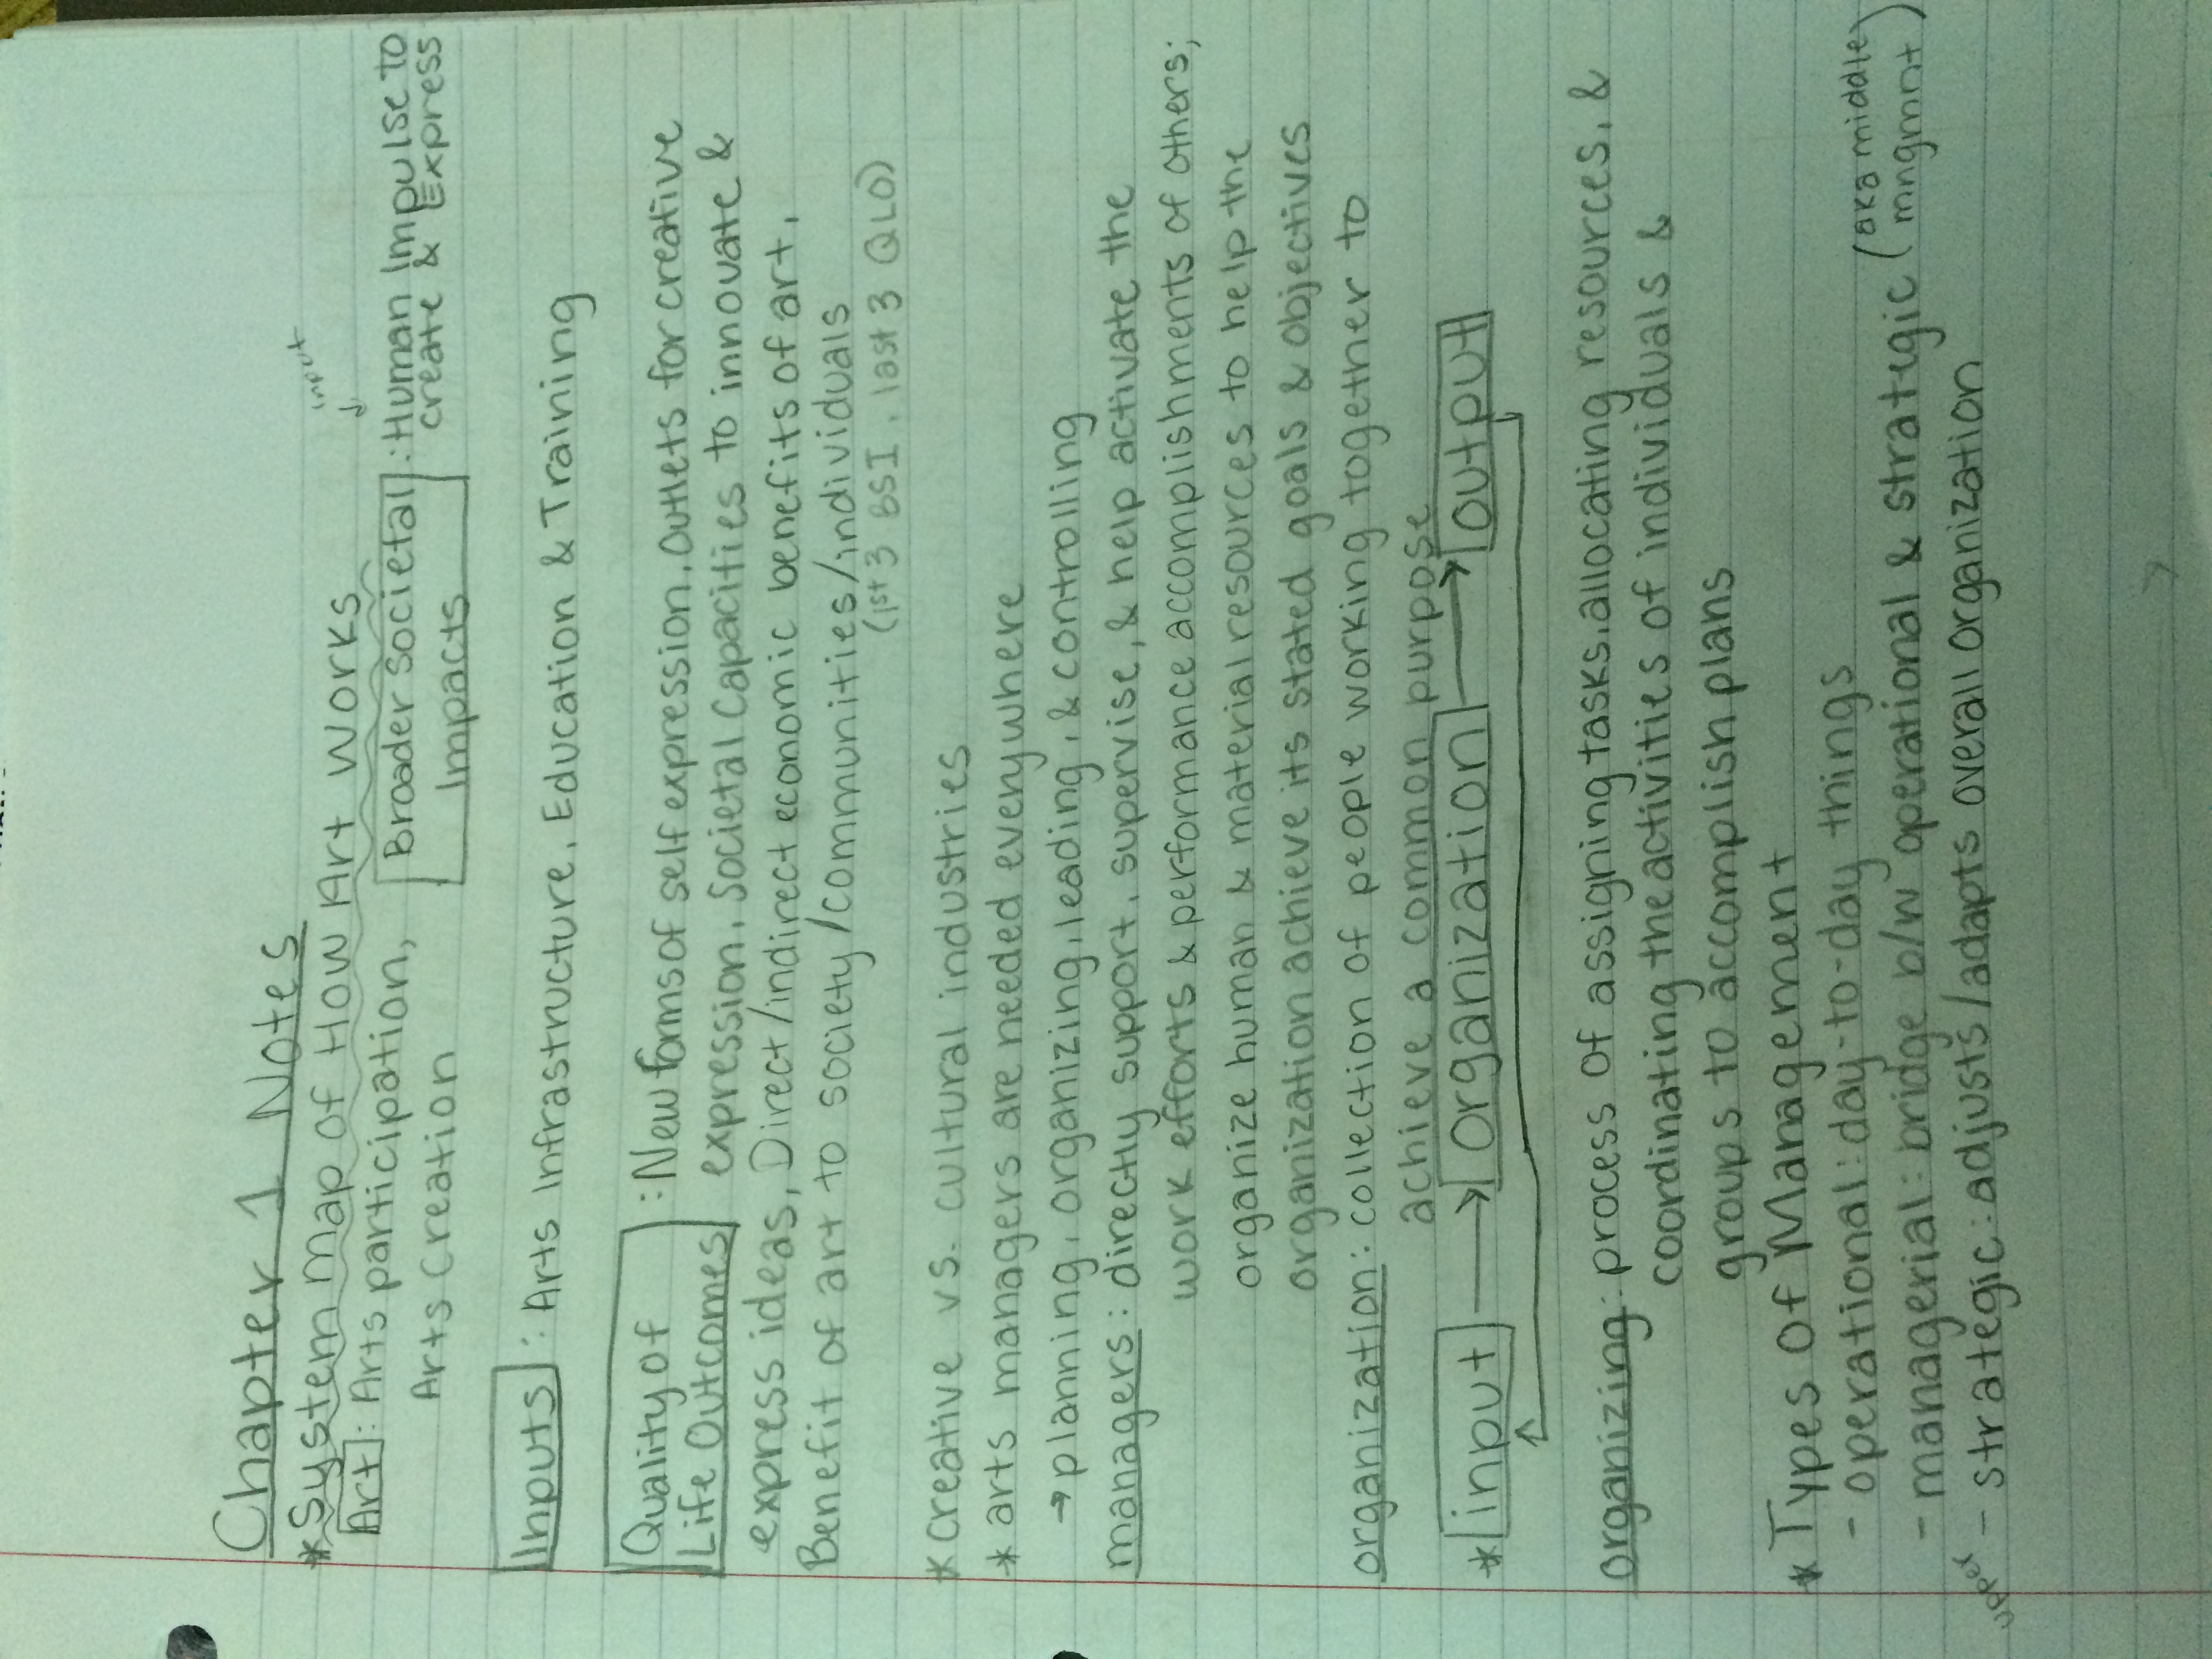 Chapter 1 Notes
input
* System map of How Art Works
Art: Arts participation, Broader Societal : Human Impulse to
Arts Creation Impacts create & Express
Inputs : Arts Infrastructure, Education & Training
Quality of : New forms of self expression, Outlets for creative
Life Outcomes expression, Societal Capacities to innovate &
express ideas, Direct/indirect economic benefits of art,
Benefit of art to society/communities/individuals
(1st 3 BSI, last 3 QLO)
* creative vs. cultural industries
* arts managers are needed everywhere
→ planning, organizing, leading, & controlling
managers: directly support, supervise, & help activate the
work efforts & performance accomplishments of others;
organize human & material resources to help the
organization achieve its stated goals & objectives
organization: collection of people working together to
achieve a common purpose
* input → organization → output
organizing: process of assigning tasks, allocating resources, &
coordinating the activities of individuals &
groups to accomplish plans
* Types of Management
- operational: day-to-day things
- managerial: bridge b/w operational & strategic (aka middle mngmnt)
upper - strategic: adjusts/adapts overall organization